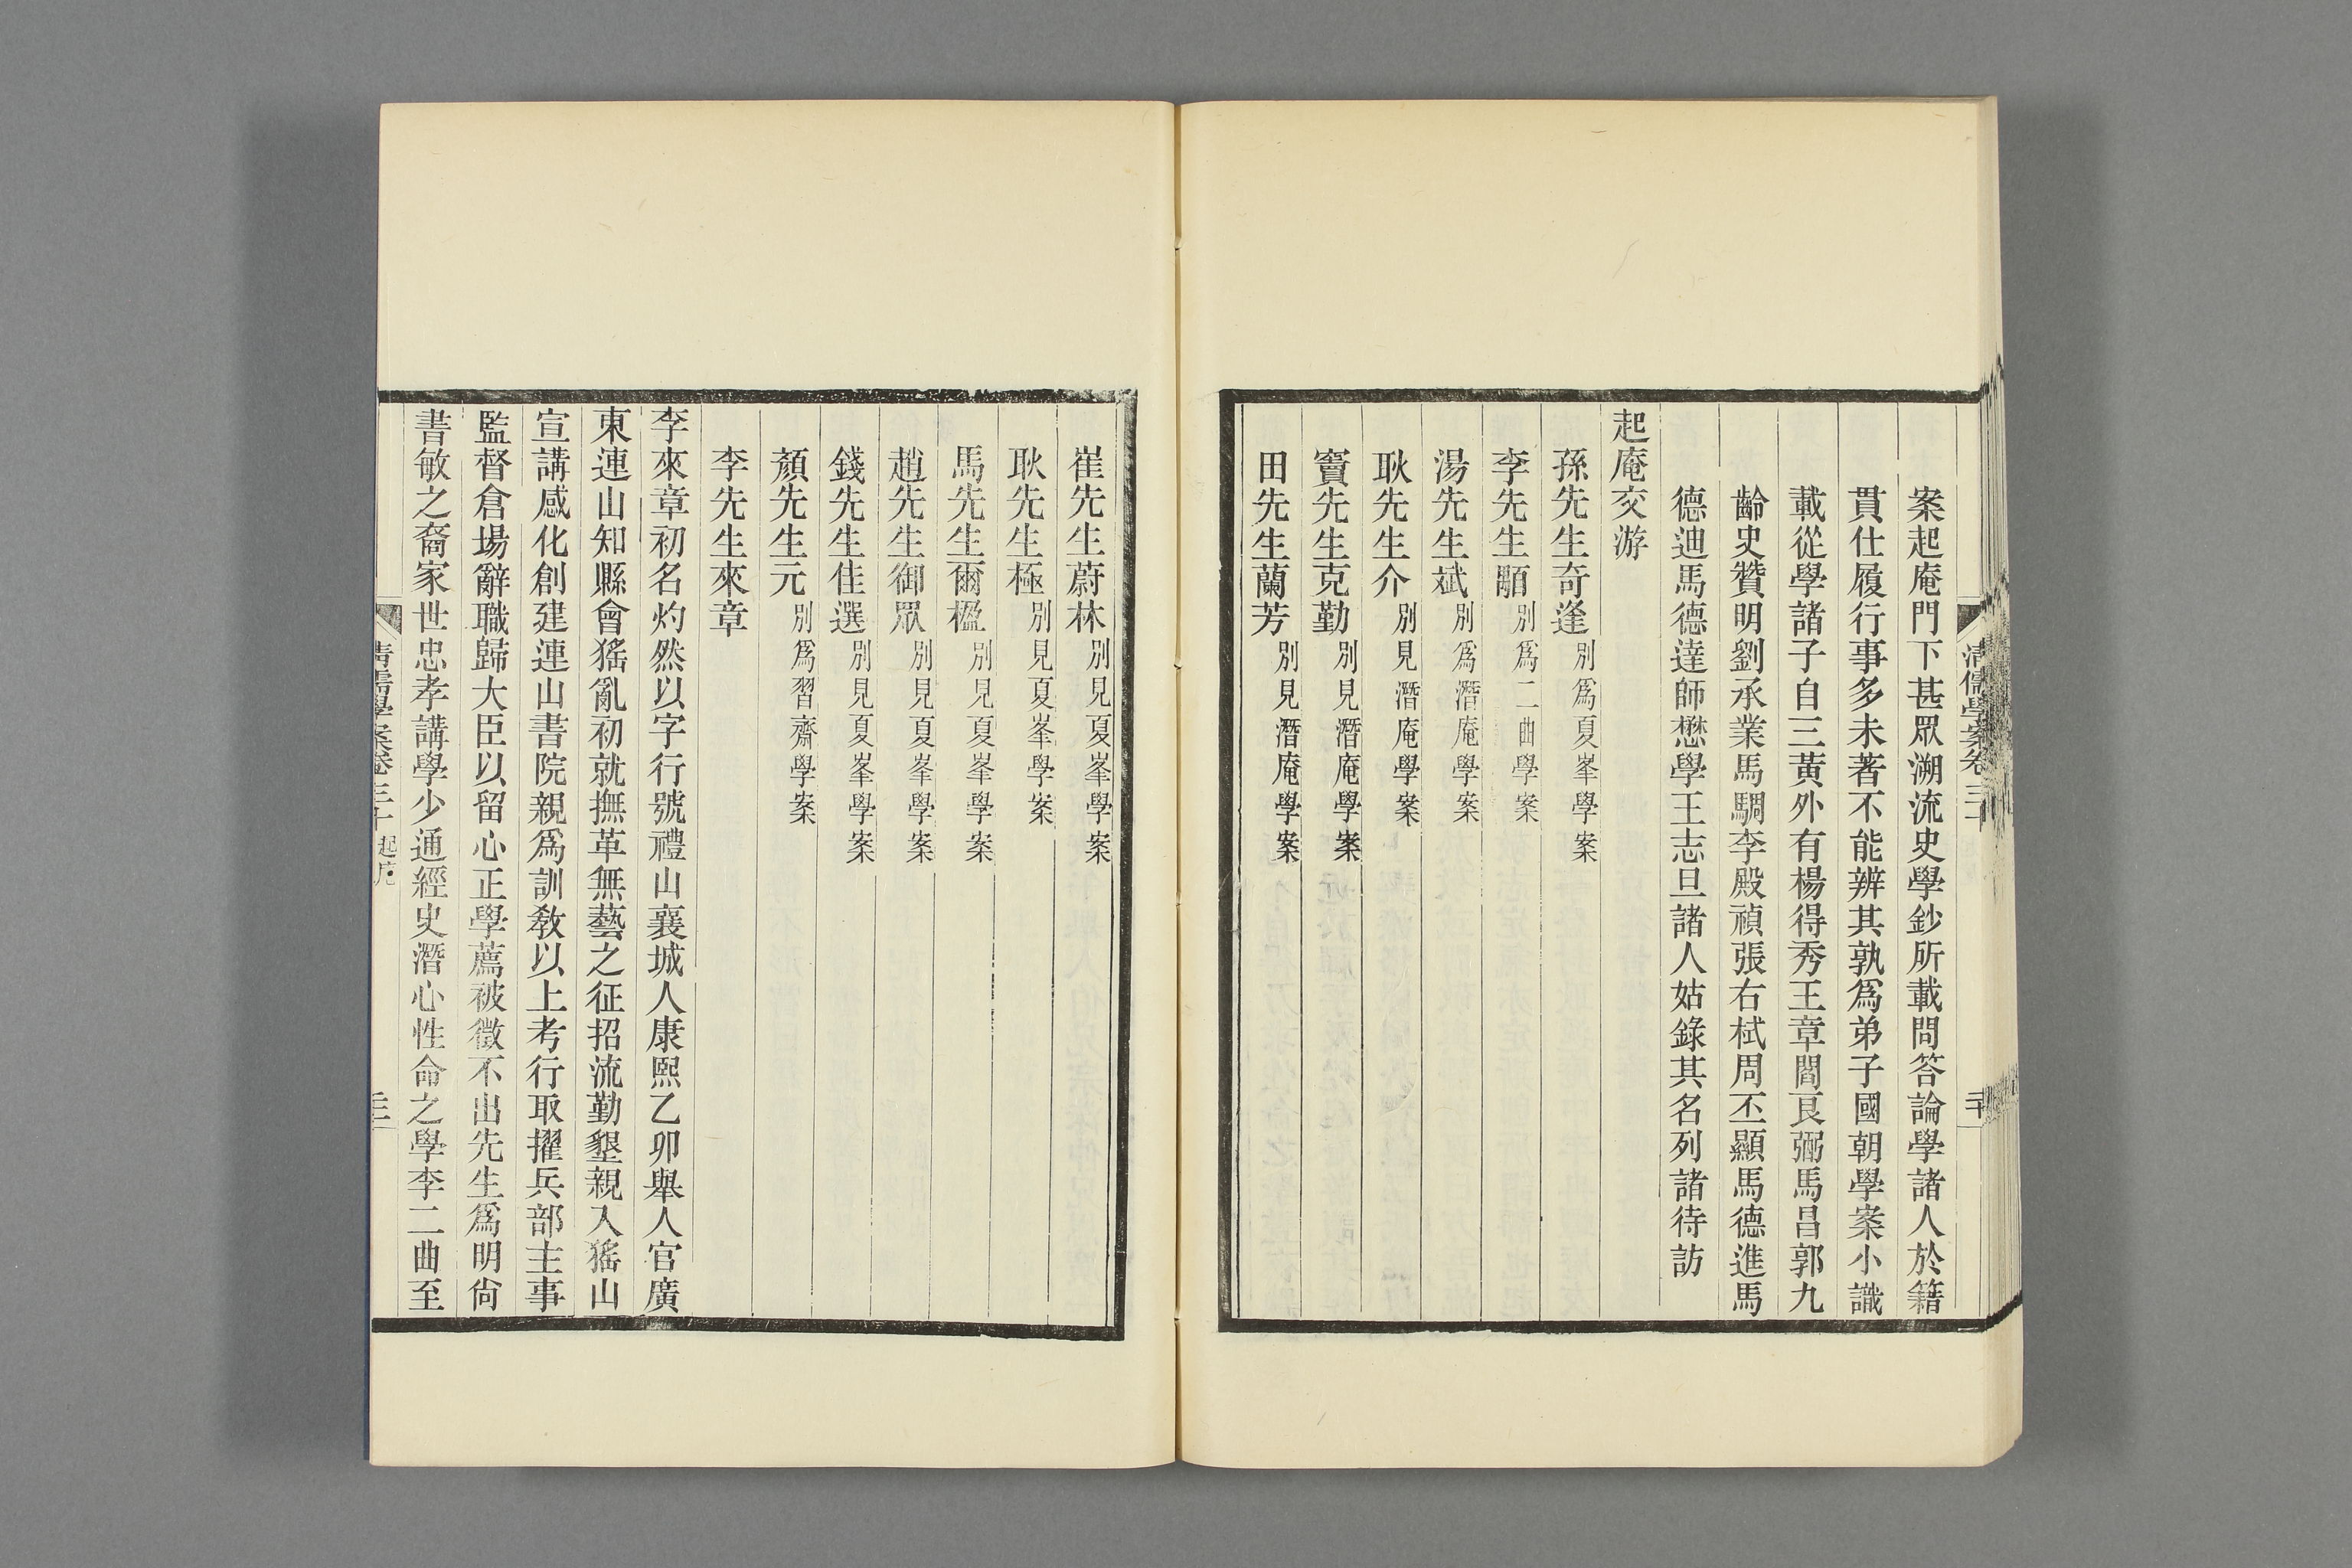 案起庵門下甚眾溯流史學鈔所載問答論學諸人於籍
貫仕履行事多未著不能辨其孰爲弟子國朝學案小識
載從學諸子自三黃外有楊得秀王章閻艮弼馬昌郭九
齡史贊明劉承業馬騆李殿禎張右栻周丕顯馬德進馬
德迪馬德達師懋學王志旦諸人姑錄其名列諸待訪
起庵交游
孫先生奇逢別爲夏峯學案
李先生顒別爲二曲學案
湯先生斌別爲潛庵學案
耿先生介別見潛庵學案
竇先生克勤別見潛庵學案
田先生蘭芳別見潛庵學案
崔先生蔚林別見夏峯學案
耿先生極別見夏峯學案
馬先生爾楹別見夏峯學案
趙先生御眾別見夏峯學案
錢先生佳選別見夏峯學案
顏先生元別爲習齋學案
李先生來章
李來章初名灼然以字行號禮山襄城人康熙乙卯舉人官廣
東連山知縣會猺亂初就撫革無藝之征招流勤墾親入猺山
宣講感化創建連山書院親爲訓敎以上考行取擢兵部主事
監督倉場辭職歸大臣以留心正學薦被徵不出先生爲明尙
書敏之裔家世忠孝講學少通經史潛心性命之學李二曲至
清儒學案卷三十 起庵